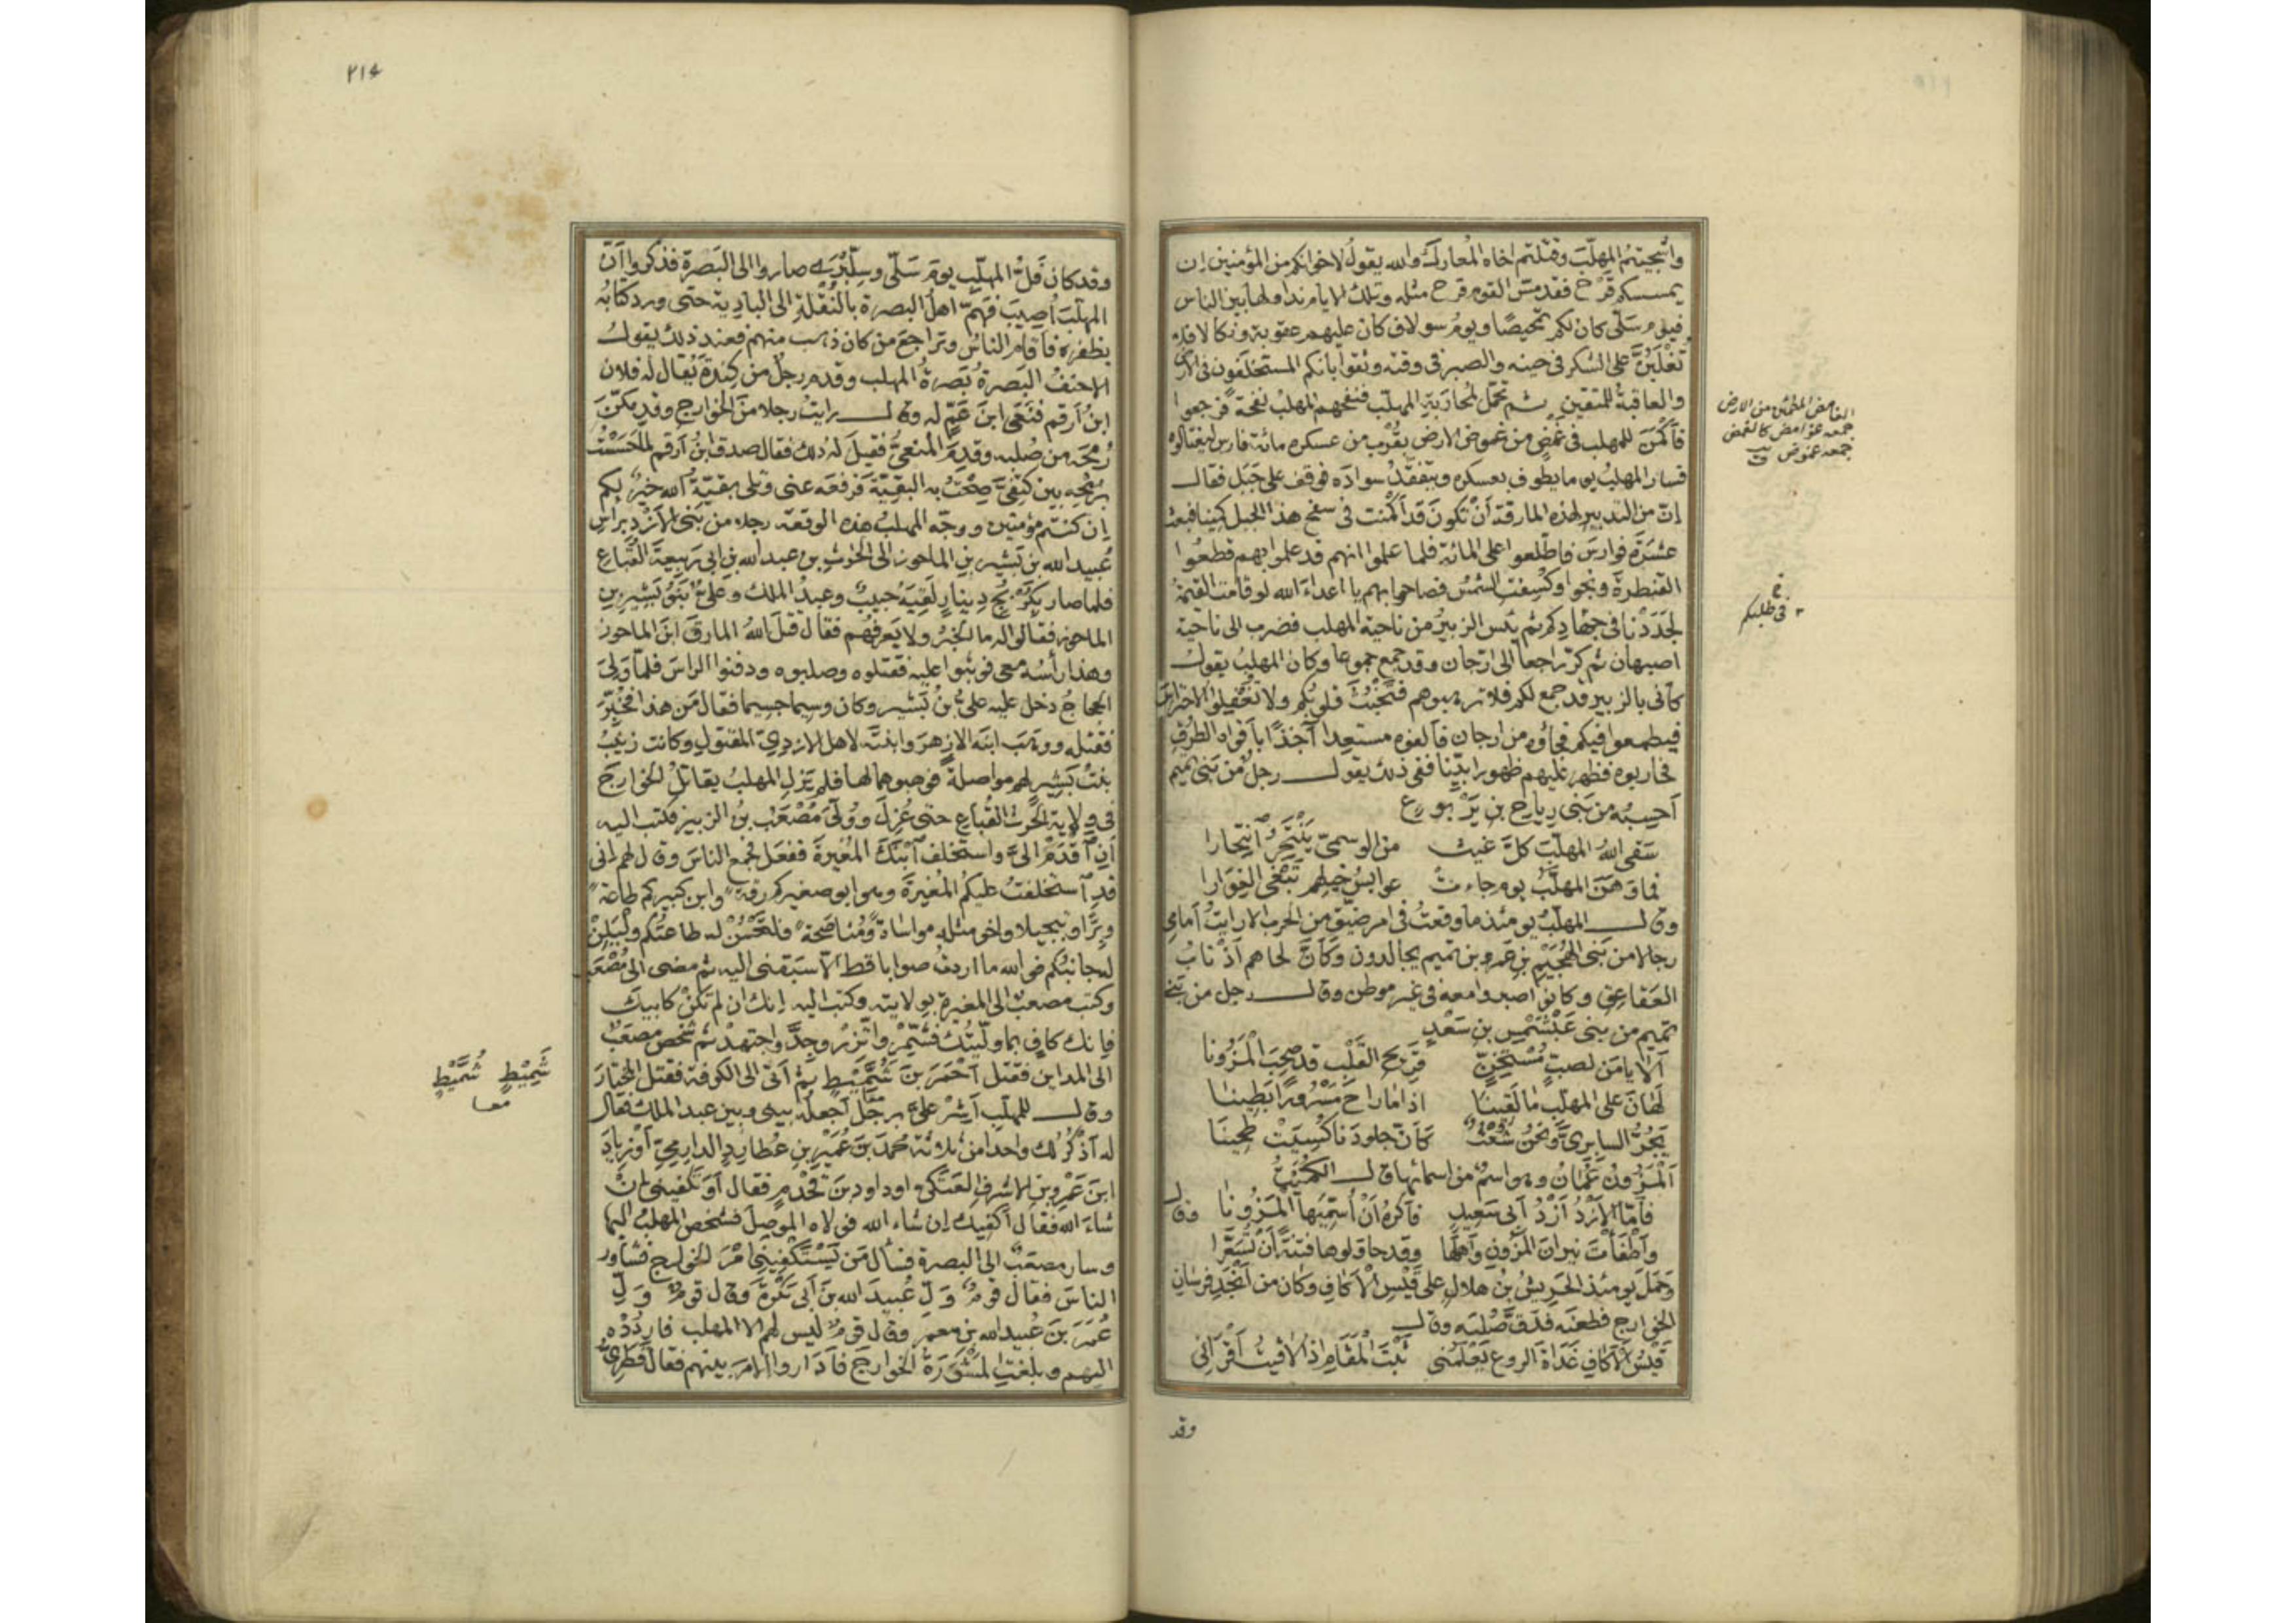 وأشجيتم المهلّبَ وقتلتم اخاه المُعارك والله يقولُ لاخوانكم من المؤمنين إن
يمسسكم قَرْح فقد مسّ القوم قرح مثله وتلك الايام نداولها بين الناس
فيوم سَلّى كان لكم تمحيصًا ويوم سولاف كان عليهم عقوبة ونكالا فلا
تُغْلَبُنَّ على الشكر فى حينه والصبر فى وقته وثقوا بانكم المستخلَفون فى الارض
والعاقبة للمتقين ثم تحمّل لمُحاربةِ المهلّب فنفحهم المهلبُ نفحة فرجعوا
فأكمَنَ للمهلب فى غَمْضٍ من غموض الارض يقرُب من عسكره مائة فارس ليغتالوه
فسار المهلبُ يوما يطوف بعسكره ويتفقّدُ سوادَه فوقف على جَبَل فقال
إنّ من التدبير لهذه المارقة أنْ تكونَ قد أكْمنت فى سفح هذا الجبل كمينا فبعث
عَشَرَةَ فوارسَ فاطّلعوا على المائة فلما علموا انهم قد علموا بهم قطعُوا
القنطرةَ ونجوا وكُسِفت الشمسُ فصاحوا بهم يا اعداءَ الله لو قامت القيمةُ
لجَدَدْنا فى جهادكم ثم يئس الزبيرُ من ناحية المهلب فضرب الى ناحية
اصبهان ثم كرّ راجعاً الى ارّجان وقد جمع جموعا وكان المهلبُ يقول
كأنى بالزبير قد جمع لكم فلا ترهبوهم فتَخْبُثَ قلوبُكم ولا تُغْفِلوا الاحتراسَ
فيطمعوا فيكم فجاؤه من ارجان فألفوه مستعِدا آخِذًا بأفواه الطرق
فحاربوه فظهر عليهم ظهورا بيّنا ففى ذلك يقول رجلٌ من بَنى تميم
أحسِبُه من بَنى رِياح بن يَرْبوع
سَقَى اللهُ المهلّبَ كلَّ غيث من الوسمىّ يَنْتَحِرُ آنتِحارا
فما وَهَنَ المهلَّبُ يوم جاءت عوابِسُ خيلِهم تَبْغى الغِوَارا
وقال المهلّبُ يومئذ ما وقعتُ فى امر ضيّق من الحرب الا رايتُ أمامى
رجالا من بَنى الهُجَيْمِ بن عَمرو بن تميم يجالدون وكأنَّ لحاهم أذْنابُ
العَقاعق وكانوا صبروا معه فى غير موطن وقال رجل من بَنى
تميم من بنى عَبْشَمْسِ بن سَعْدٍ
ألا يا مَن لصبٍّ مُسْتَحِنٍّ قرِيحِ القَلْب قد صَحِبَ المَزُونا
لَهَانَ على المهلّب مَا لَقينا اذا ما راحَ مَسْرُورًا بَطِينَا
يَجُرُّ السابرىَّ ونحْنُ شُعْثٌ كأنّ جلودَنا كُسِيَتْ طحِينَا
اَلمَزُونُ عُمَانُ وهو اسمٌ من اسمائها قال الكُمَيْتُ
فأمّا الأَزْدُ أزْدُ أبى سَعيدٍ فأكرَهُ أنْ أُسَمِّيَها المَزُونا وقال
وأطْفأْتَ نيرانَ المَزُونِ وأهلَها وقد حاولوها فتنةً أن تُسَعَّرا
وحَمَلَ يومئذ الحَرِيشُ بنُ هلال على قَيْسِ الأكاف وكان من أنْجَدِ فرسان
الخوارج فطعنه فدَقَّ صُلبَه وقال
قَيْسُ الأكافِ غَدَاةَ الروعِ يَعْلَمُنى ثَبْتَ المَقَامِ اذا لاقيتُ أقْرانى
وقد
الغامض المطمئن من الارض
جمعه غوامض كالغمض
جمعه غموض ق
خ
فى طلبكم
٢١٤
وقد كان فَلُّ المهلّبِ يومَ سَلّى وسِلِّبْرَى صاروا الى البَصرة فذكروا أنّ
المهلّبَ أصِيبَ فهَمّ اهلُ البصرة بالنُّقْلةِ الى البادِية حتى ورد كتابُه
بظفره فأقام الناسُ وتراجعَ من كان ذهب منهم فعند ذلك يقول
الاحنفُ البَصرةُ بَصرةُ المهلب وقدم رجلٌ من كِندةَ يُقال له فلان
ابنُ أرقم فنَعَى ابنَ عَمٍّ له وقال رايتُ رجلا منَ الخوارج وقد مكّنَ
رُمحَه من صُلبه وقدِمَ المنعىُّ فقيلَ له ذلك فقال صدق ابنُ أرقم لما حَسَسْتُ
برمحِه بين كَتِفىَّ صِحْتُ به البقيّةَ فرفعَه عنى وتلى بقيّةُ الله خيرٌ لكم
إن كنتم مؤمنين ووجّه المهلبُ بهذه الوقعة رجلا من بَنى الأزْدِ براس
عُبيد الله بن بَشير بن الماحوز الى الحٰرث بن عبد الله بن ابى رَبيعةَ القُباع
فلما صار بكُرْبُجِ دِينارٍ لَقيَه حبيبٌ وعبدُ الملك وعلىُّ بَنُو بَشير بن
الماحوز فقالوا له ما الخبرُ ولا يَعرفُهم فقال قتلَ اللهُ المارقَ ابنَ الماحوز
وهذا رأسُه معى فوثبوا عليه فقتلوه وصلبوه ودفنوا الراسَ فلمّا وَلِىَ
الحجاجُ دخل عليه علىُّ بنُ بَشير وكان وسيما جسيما فقال مَن هذا فخُبِّرَ
فقتله ووَهَبَ ابنَه الازهرَ وابنتَه لاهل الازدِىّ المقتولِ وكانت زينبُ
بنتُ بَشيرٍ لهم مواصلةً فوهبوهما لها فلم يَزلِ المهلبُ يقاتلُ الخوارجَ
فى وِلاية الحٰرث القُباع حتى عُزِلَ ووُلّىَ مُصْعَبُ بنُ الزبير فكتب اليه
أنِ آقْدَمْ الىَّ واستخلف آبْنَكَ المُغيرةَ ففعل فجمع الناسَ وقال لهم إنى
قدِ آستخلفتُ عليكُم المُغيرةَ وهو ابو صغيركم رِقّةً وابن كبيركم طاعةً
وبِرًّا وتبجيلا واخو مثله مواساةً ومُناصَحةً فلتَحْسُنْ له طاعتُكم ولْيَلِنْ
له جانبُكم فوالله ما اردتُ صوابا قط الّا سَبَقنى اليه ثم مضى الى مُصْعَبٍ
وكتب مصعبٌ الى المغيرة بولايته وكتب اليه إنك ان لم تكنْ كابيك
فإنك كافٍ بما ولّيتُك فشَمِّرْ واتّزِرْ وجِدَّ واجتهدْ ثم شخص مصعبٌ
الى المداين فقتل أحْمَرَ بنَ شُمَيْطٍ ثمّ أتى الى الكوفة فقتل المختارَ
وقال للمهلّبِ أشِرْ علىَّ برجُلٍ أجعلُه بينى وبين عبد الملك فقال
له آذكُرُ لك واحدا من ثلاثة محمدَ بنَ عُمَيْرِ بنِ عُطاردٍ الدارِمىَّ أوْ زيادَ
ابنَ عَمْرِو بنِ الاشرفِ العَتَكىّ او داودَ بنَ قَحْذمٍ فقال أوَ تكفينى إنْ
شاءَ الله فقال أكفيك إن شاء الله فولاه المَوصِلَ فشخص المهلبُ اليها
وسار مصعبٌ الى البصرة فسأل مَن يَسْتَكْفِينى أمْرَ الخوارج فشاور
الناسَ فقال قومٌ وَلِّ عُبيدَ الله بنَ أبى بَكْرةَ وقال قومٌ وَلِّ
عُمَرَ بنَ عُبيدِ الله بنِ معمرٍ وقال قومٌ ليس لهم الا المهلب فاردُدْه
اليهم وبلغتِ المَشُورةُ الخوارجَ فأدَاروا الامرَ بينهم فقال قَطَرِىٌّ
شَمِيْطٍ شُمَيْطٍ
معا